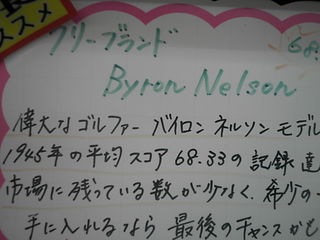 ススメ
フリーブランド
68.
Byron Nelson
偉大なゴルファー バイロン ネルソン モデル
1945年の平均スコア 68.33の記録達
市場に残っている数が少なく、希少の
手に入れるなら 最後のチャンスかも